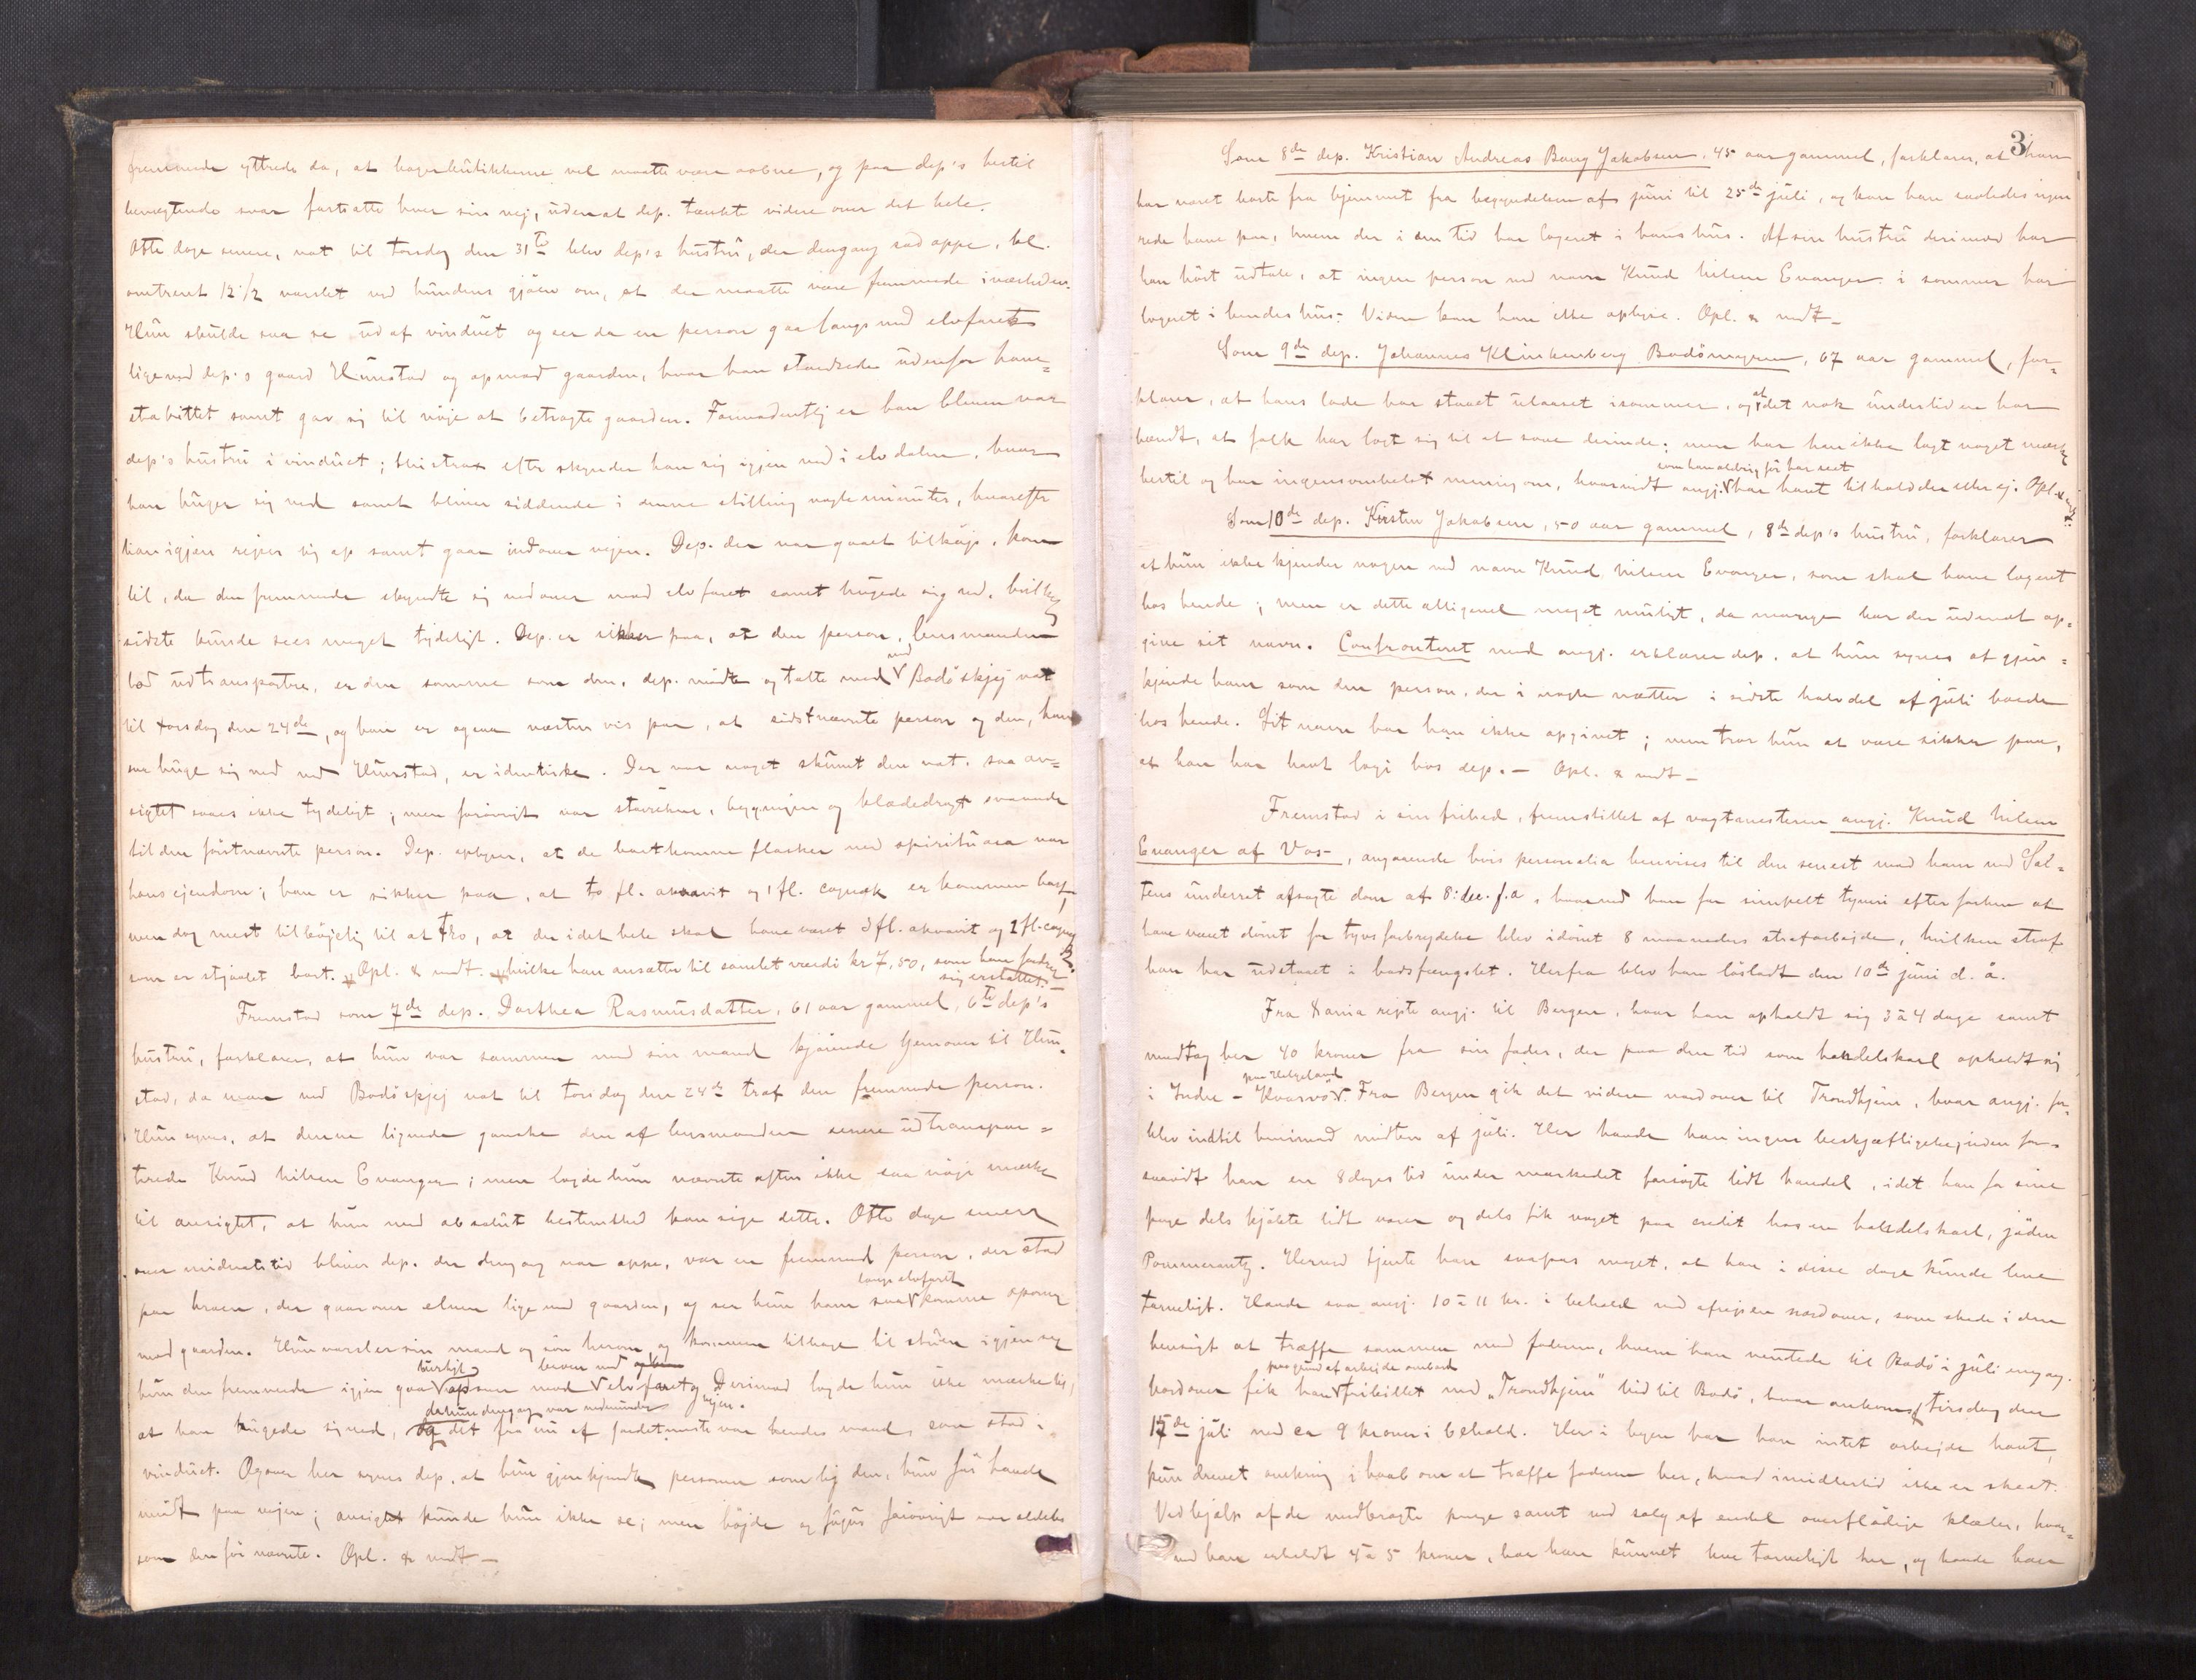 fremmede yttrede da, at bagerbutikkerne vel maatte være aabne, og paa dep's hertil
benægtende svar fortsatte hver sin vej, uden at dep. tænkte videre over det hele.
Otte dage senere, nat til torsdag den 31te blev dep's hustru, der dengang sad oppe, kl.
omtrent 12 1/2 varslet ved hundens gjøen om, at der maatte være fremmede i nærheden.
Hun skulde saa se ud af vinduet og ser da en person gaa langs med elvfaret
lige ved dep's gaard Hunstad og opmod gaarden, hvor han standsede udenfor have=
stakittet samt gav sig til nøje at betragte gaarden. Formodentlig er han bleven var
dep's hustru i vinduet; thi strax efter skynder han sig igjen ned i elvdalen, hvor
han huger sig ned samt bliver siddende i denne stilling nogle minuter, hvorefter
han igjen rejser sig op samt gaar indover vejen. Dep. der var gaaet tilkøjs, kom
til, da den fremmede skyndte sig nedover mod elvfaret samt hugede sig ned, hvilket
sidste kunde sees meget tydeligt. Dep. er sikker paa, at den person, lensmanden
lod udtransportere, er den samme som den, dep. mødte og talte med ved Bodøskjej nat
til torsdag den 24de, og han er ogsaa næsten vis paa, at sidstnævnte person og den, han
saa huge sig ned ved Hunstad, er identiske. Der var noget skumt den nat, saa an=
sigtet saaes ikke tydeligt; men forøvrigt var størrelsen, bygningen og klædedragt svarende
til den førstnævnte person. Dep. oplyser, at de bortkomne flasker med spirituosa var
hans ejendom; han er sikker paa, at to fl. akvavit og 1 fl. cognak er kommen bort,
men dog mest tilbøjelig til at tro, at der i det hele skal have været 3 fl. akvavit og 2 fl. cognak,
som er stjaalet bort. Opl. & vedt. hvilke han ansætter til samlet værdi kr 7,50, som han fordrer
sig erstattet.—
Fremstod som 7de dep. Dorthea Rasmusdatter, 61 aar gammel, 6te dep's
hustru, forklarer, at hun var sammen med sin mand kjørende hjemover til Hun=
stad, da man ved Bodøskjej nat til torsdag den 24de traf den fremmede person.
Hun synes, at denne lignede ganske den af lensmanden senere udtranspor=
terede Knud Nilsen Evanger; men lagde hun nævnte aften ikke saa nøje mærke
til ansigtet, at hun med absolut bestemthed kan sige dette. Otte dage senere
over midnatstid bliver dep. der dengang var oppe, var en fremmed person, der stod
paa broen, der gaar over elven lige ved gaarden, og ser hun ham saa langs elvfaret komme opover
mod gaarden. Hun varsler sin mand og søn herom og kommen tilbage til stuen igjen saa
hun den fremmede igjen gaa hurtigt
mod elvfaret og vejen. Derimod lagde hun ikke mærke til,
at han hugede sig ned, da hun dengang var nedenunder og det frø nu af fordetmeste var hendes mand, som stod i
vinduet. Ogsaa her synes dep. at hun gjenkjendte personen som lig den, hun før havde
mødt paa vejen; ansigtet kunde hun ikke se; men højde og figur forøvrigt var aldeles
som den før nævnte. Opl. & vedt —
3
Som 8de dep. Kristian Andreas Bang Jakobsen, 45 aar gammel, forklarer, at han
har været borte fra hjemmet fra begyndelsen af juni til 25de juli, og kan han saaledes ingen
rede have paa, hvem der i den tid har logeret i hans hus. Af sin hustru derimod har
han hørt udtale, at ingen person ved navn Knud Nilsen Evanger i sommer har
logeret i hendes hus. Viden kan han ikke oplyse. Opl. & vedt —
Som 9de dep. Johannes Klinkenberg Bodømagen, 67 aar gammel, for=
klarer, at hans lade har staaet ulaaset isommer, og at det nok undertiden har
hændt, at folk har lagt sig til at sove derinde; men har han ikke lagt noget mærke
hertil og har ingensomhelst mening om, hvorvidt angj. som han aldrig før har seet har havt tilhold der eller ej. Opl. & vedt.
Som 10de dep. Kirsten Jakobsen, 50 aar gammel, 8de dep's hustru, forklarer
at hun ikke kjender nogen ved navn Knud Nilsen Evanger, som skal have logeret
hos hende; men er dette alligevel meget muligt, da mange har der uden at op=
give sit navn. Confronteret med angj. erklærer dep. at hun synes at gjen=
kjende ham som den person, der i nogle nætter i sidste halvdel af juli boede
hos hende. Sit navn har han ikke opgivet; men tror hun at være sikker paa,
at han har havt logi hos dep. — Opl. & vedt —
Fremstod i sin frihed, fremstillet af vagtmesteren angj. Knud Nilsen
Evanger af Vos, angaaende hvis personalia henvises til den senest mod ham ved Sal=
tens underret afsagte dom af 8. dec. f.a., hvorved han for simpelt tyveri efter forhen at
have været dømt for tyvsforbrydelse blev idømt 8 maaneders strafarbejde, hvilken straf
han har udstaaet i bodsfængslet. Herfra blev han løsladt den 10de juni d. å.
Fra Xania rejste angj. til Bergen, hvor han opholdt sig 3 à 4 dage samt
modtog her 40 kroner fra sin fader, der paa den tid som handelskarl opholdt sig
i Indre-Kvarøv paa Helgeland. Fra Bergen gik det videre nordover til Trondhjem, hvor angj. for=
blev indtil henimod midten af juli. Her havde han ingen beskjæftigelse, uden for=
saavidt han en 8 dages tid under markedet forsøgte lidt handel, idet han for sine
penge dels kjøbte lidt varer og dels fik noget paa credit hos en handelskarl, jøden
Pommerantz. Herved tjente han saapas meget, at han i disse dage kunde leve
tarveligt. Havde saa angj. 10 à 11 kr. i behold ved afrejsen nordover, som skede i den
hensigt at træffe sammen med faderen, hvem han ventede til Bodø i juli engang.
Nordover fik han paa grund af arbejde ombord fribillet med „Trondhjem" hid til Bodø, hvor ankomst tirsdag den
15de juli med ca 9 kroner i behold. Her i byen har han intet arbejde havt,
kun drevet omkring i haab om at træffe faderen her, hvad imidlertid ikke er skeet.
Ved hjælp af de medbragte penge samt ved salg af endel overflødige klæder, hvor=
ved han erholdt 4 à 5 kroner, har han kunnet leve tarveligt her, og havde han